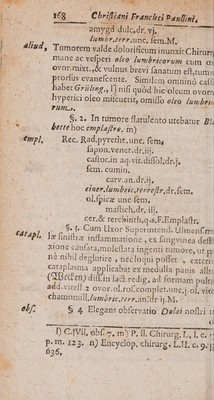 168 Christiani Francisci Paullini,
amygd dulc. dr. vj.
lumbr. terr. unc. sem. M.
aliud. Tumorem valde dolorificum inunxit Chirurg
mane ac vesperi oleo lumbricorum cum
ovor. mixt., & vulnus brevi sanatum est, tumo
prorsus evanescente. Similem omninò casu
habet Grüling., l) nisi quòd hic oleum ovorum
hyperici oleo miscuerit, omisso oleo lumbri
rum.
§. 2. In tumore flatulento utebatur
bette hoc emplastro. m)
empl. Rec. Rad. pyrethr. unc. sem.
sapon. venet. dr. iij.
castor. in aq. vit. dissol. dr. j.
sem. cumin.
carv. an. dr. ij.
ciner. lumbric. terrestr. dr. sem.
ol. spicæ unc sem.
mastich. dr. iij.
cer. & therebinth. q. s. F. Emplastr.
§. 3. Cum Uxor Superintend. Ulmens.
catapl. læ sinistræ inflammatione, ex sangvinea
xione causata, molestata ingens tumore, ut
nè nihil deglutire, nec loqui posset,
cataplasma applicabat ex medulla panis
in lact. redig. ad formam
add. vitell. 2 ovor. ol. ros. complet. unc. j ol.
chamomill. lumbric. terr. an. dr ij. M.
obs. § 4 Elegans observatio Dolæi nostri
l) C. VII. obs. 7. m) P. II. Chirurg. L. I. c.
p. m. 123. n) Encyclop. chirurg. L. II. c. 9.
636.